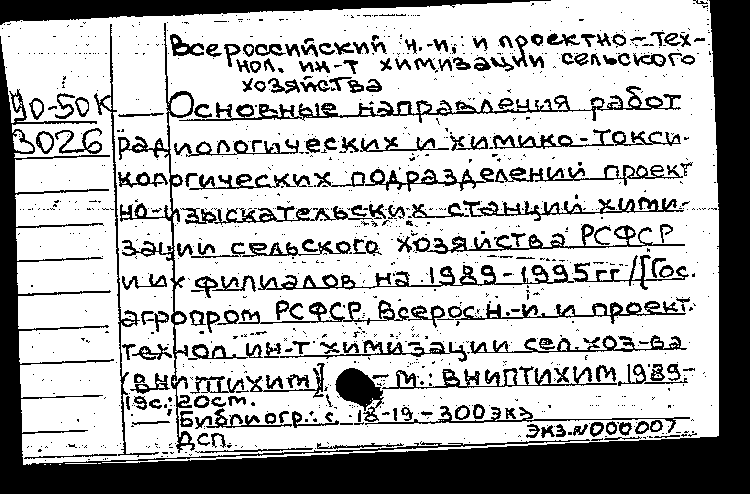 Всероссийский н.-и. и проектно-тех-
нол. ин-т химизации сельского
хозяйства
90-50К
Основные направления работ
3026
радиологических и химико-токси-
кологических подразделений проект
но-изыскательских станций хими-
зации сельского хозяйства РСФСР
и их филиалов на 1989-1995гг/[Гос.
агропром РСФСР, Всерос.н.-и. и проект.
технол. ин-т химизации сел.хоз-ва
(ВНИПТИХИМ)] - М.: ВНИПТИХИМ, 1989.-
19с.; 20см.
Библиогр.: с. 18-19.-300экз
Дсп.
экз.N000007